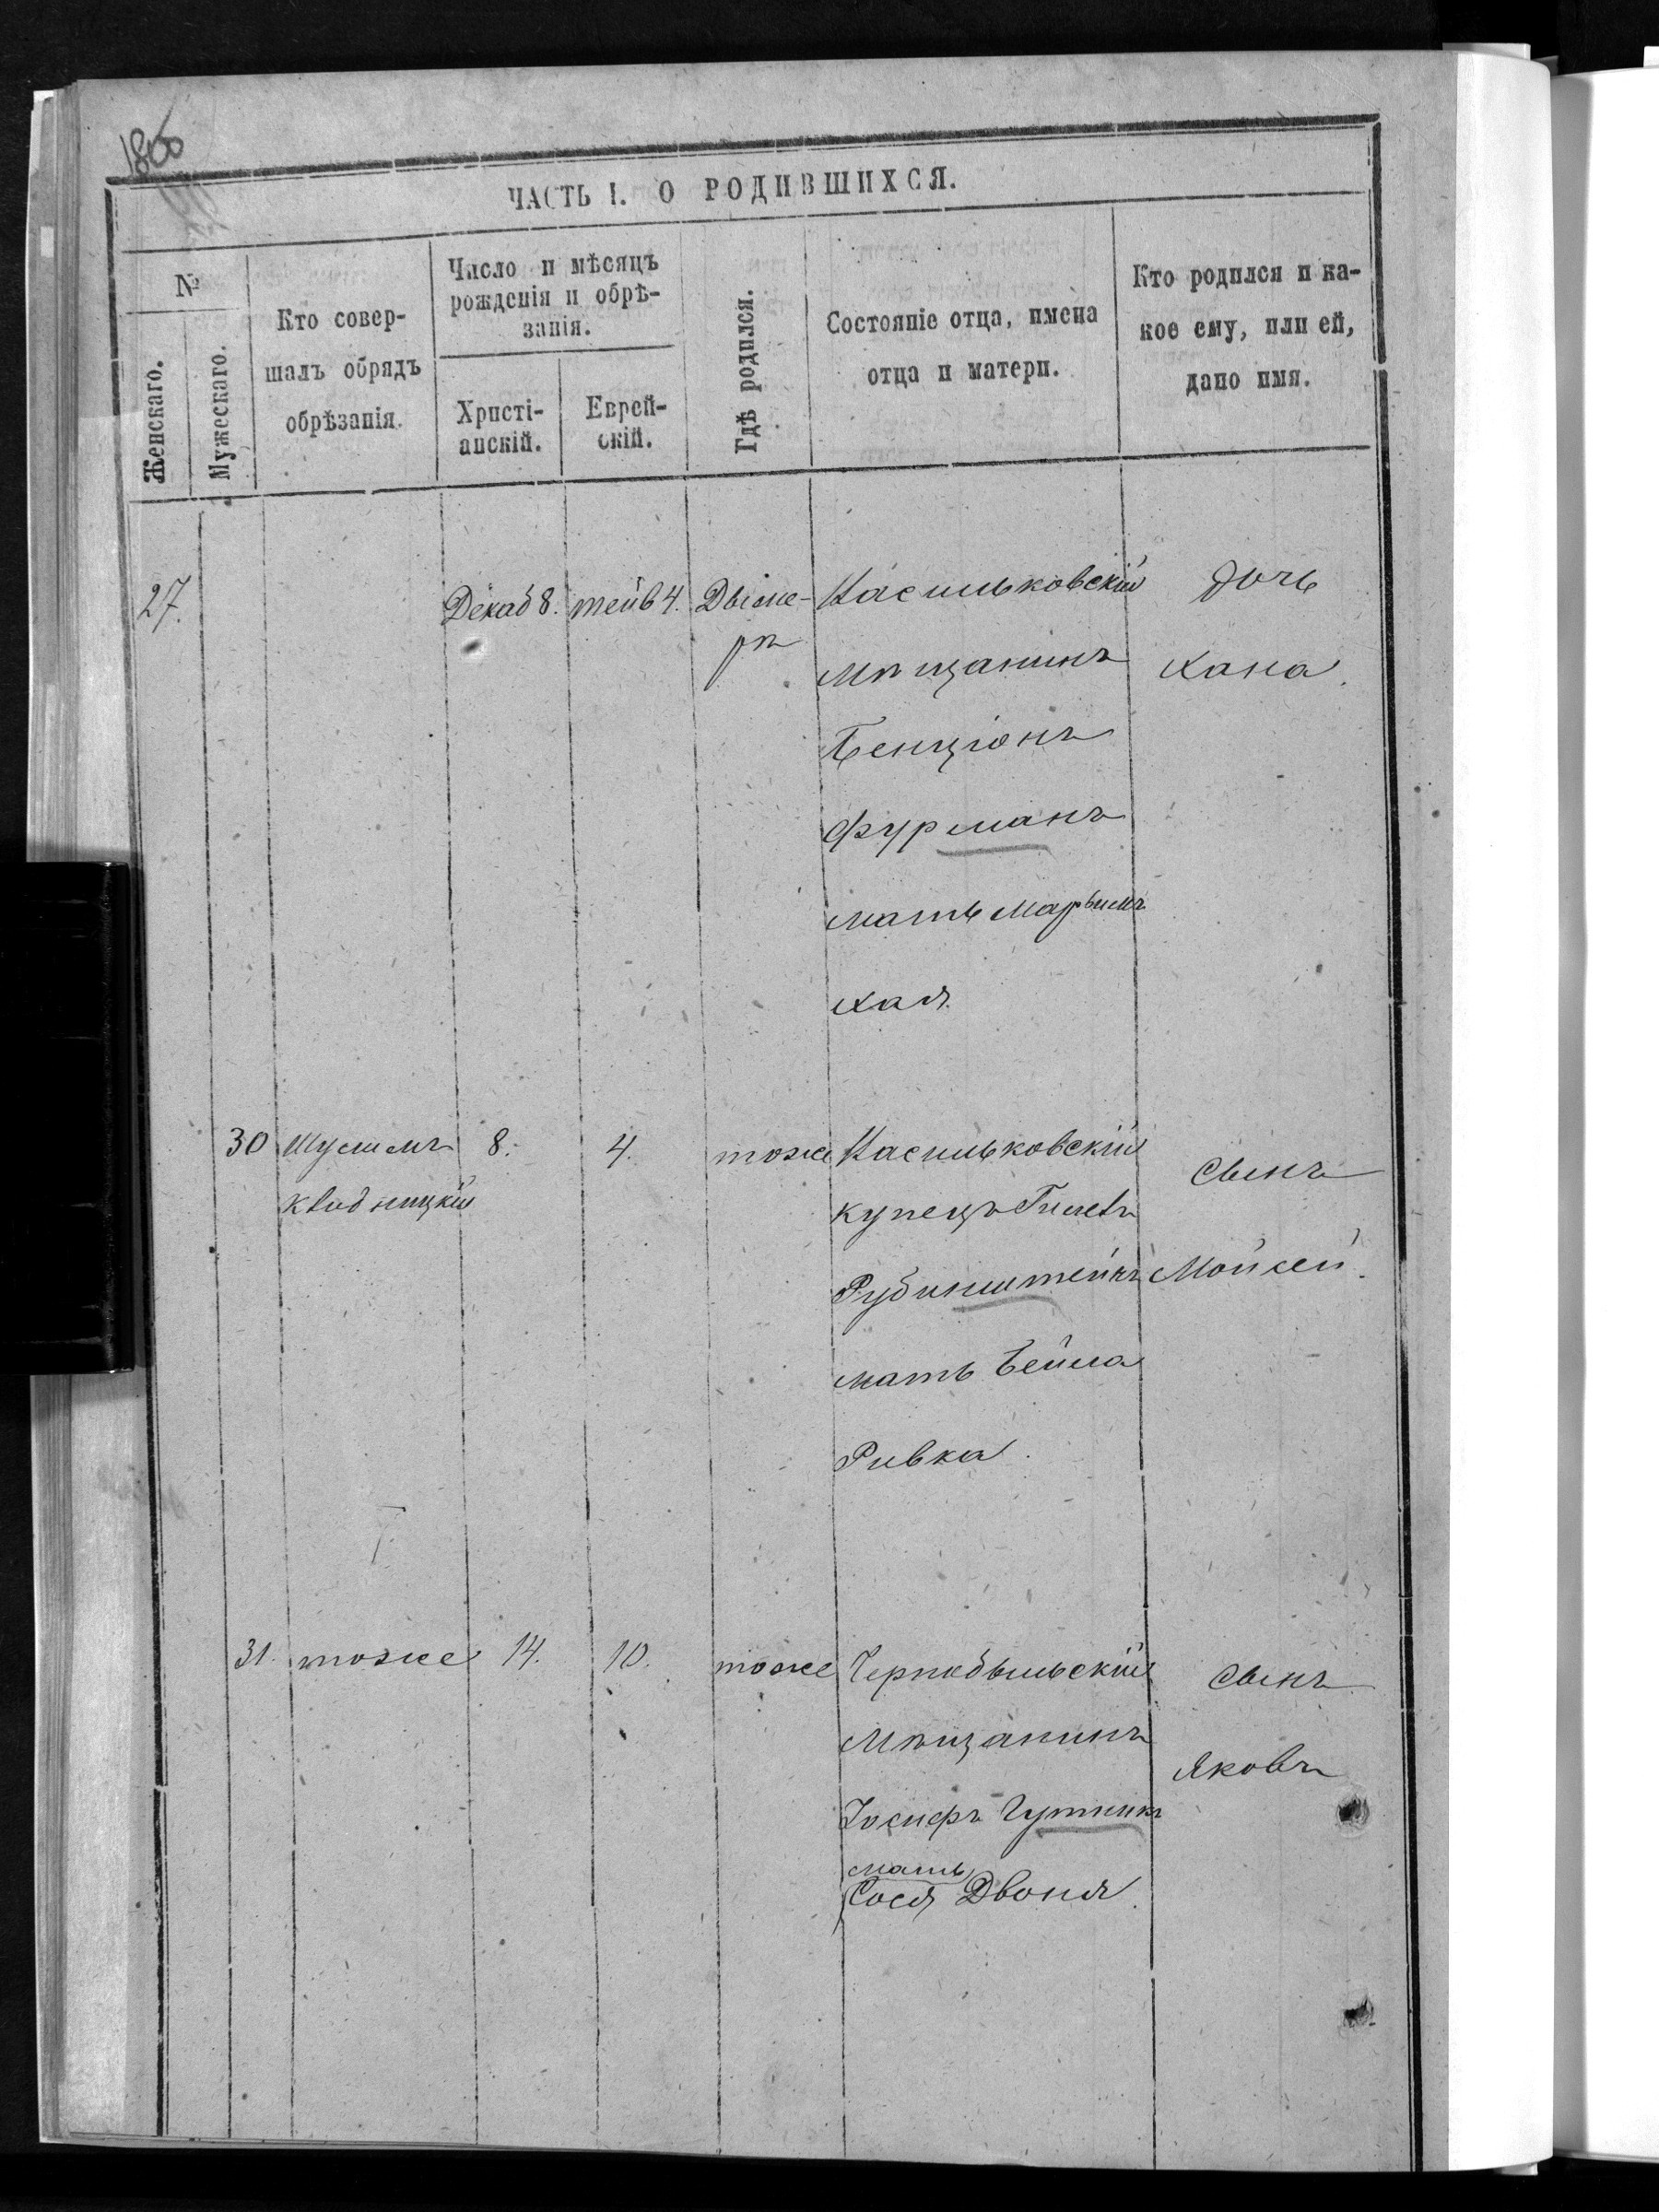 ЧАСТЬ I. О РОДИВШИХСЯ.
№
Женскаго.
Мужескаго.
Кто совер-
шалъ обрядъ
обрѣзанія.
Число и мѣсяцъ
рожденія и обрѣ-
занія.
Христі-
анскій.
Еврей-
скій.
Гдѣ родился.
Состояніе отца, имена
отца и матери.
Кто родился и ка-
кое ему, или ей,
дано имя.
27. Декаб 8. тейв 4. Дыме-
рѣ
Васильковскій
мѣщанинъ
Бенціонъ
Фурманъ
мать Марьимъ
Хая.
Дочь
Хана.
30 8. 4. тоже
Васильковскій
купецъ
Рубинштейнъ
мать Бейла
Ривка.
Сынъ
Мойсей.
31. тоже 14. 10. тоже
Чернобыльскій
мѣщанинъ
Іосифъ
мать
Сося Двоня.
Сынъ
Яковъ